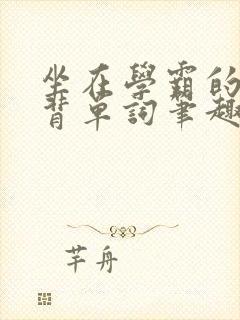 坐在學霸的
背單詞筆趣
芊舟